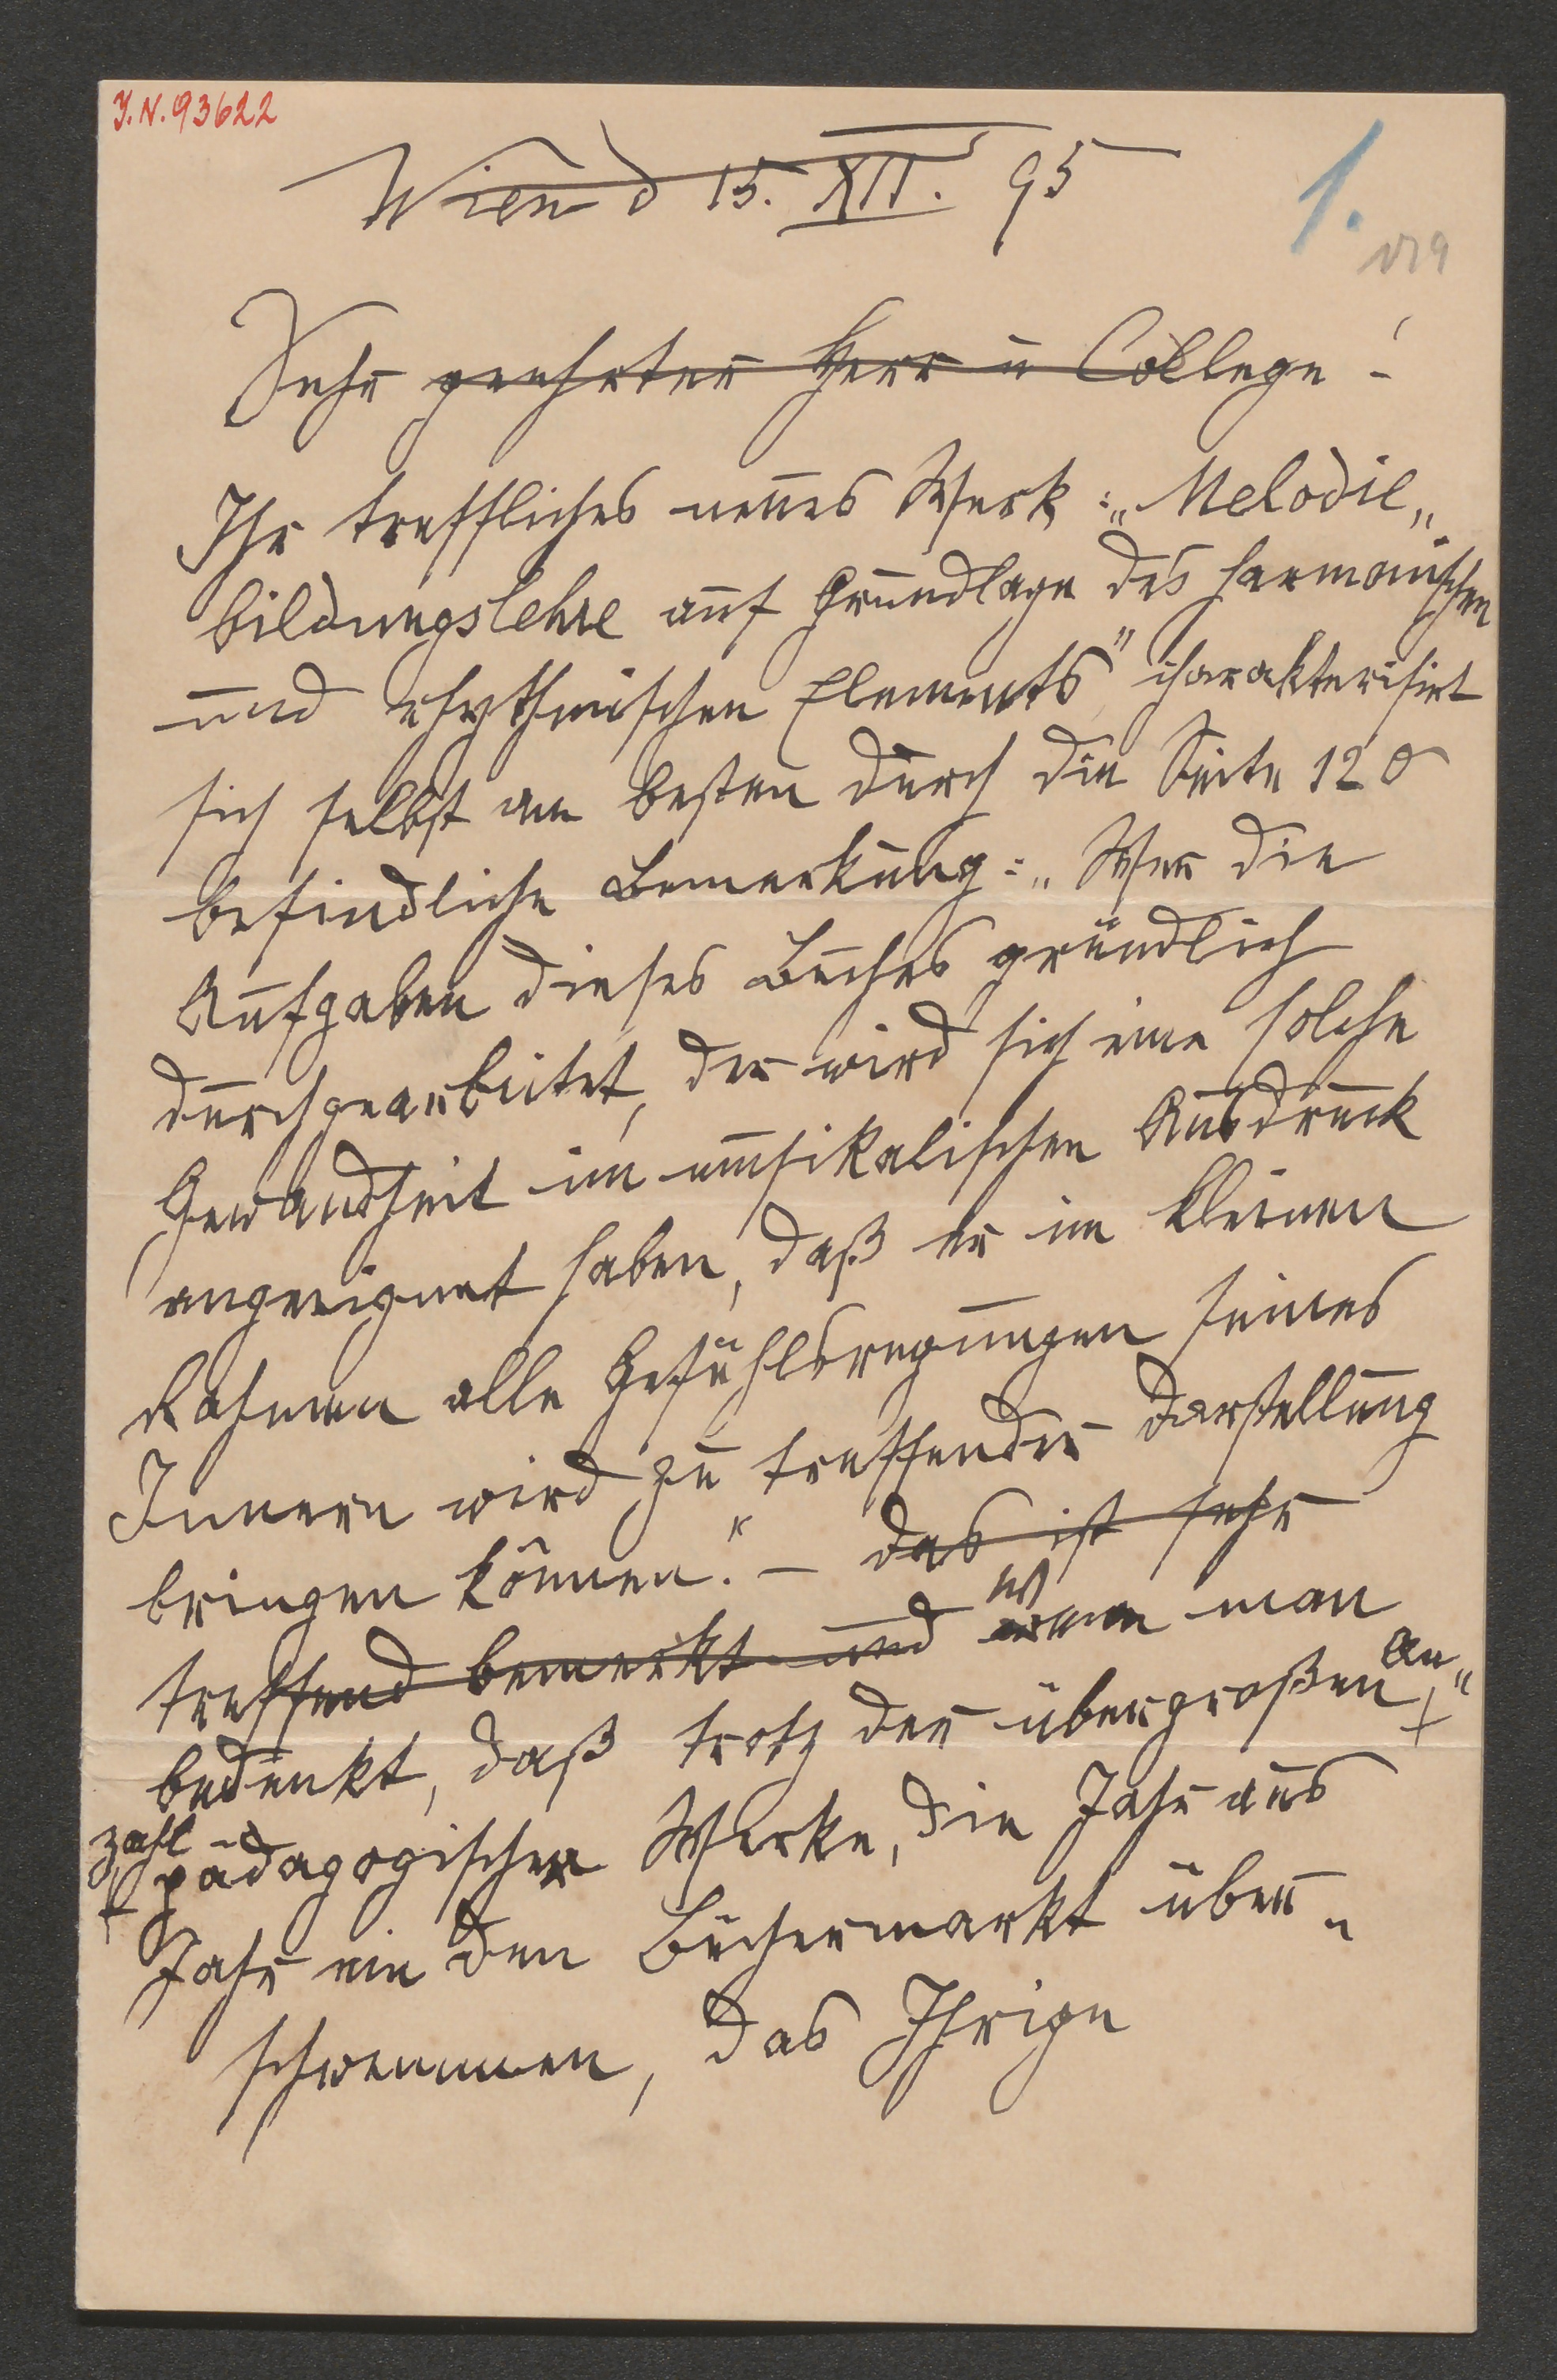 J.N. 93622
Wien d 15. XII. 95
1.
Sehr geehrter Herr u College!
Ihr treffliches neues Werk: „Melodie„
bildungslehre auf Grundlage des harmonischen
und rhythmischen Elements" charakterisirt
sich selbst am besten durch die Seite 120
befindliche Bemerkung: „Wer die
Aufgaben dieses Buches gründlich
durchgearbeitet, der wird sich eine solche
Gewandheit im musikalischen Ausdruck
angeeignet haben, daß er im kleinen
Rahmen alle Gefühlsregungen seines
Innern wird zu treffender Darstellung
bringen können." – das ist sehr
treffend bemerkt und wenn man
bedenkt, daß trotz der übergroßen An„
zahl pädagogischer Werke, die Jahr aus
Jahr ein den Büchermarkt über„
schwemmen, das Ihrige